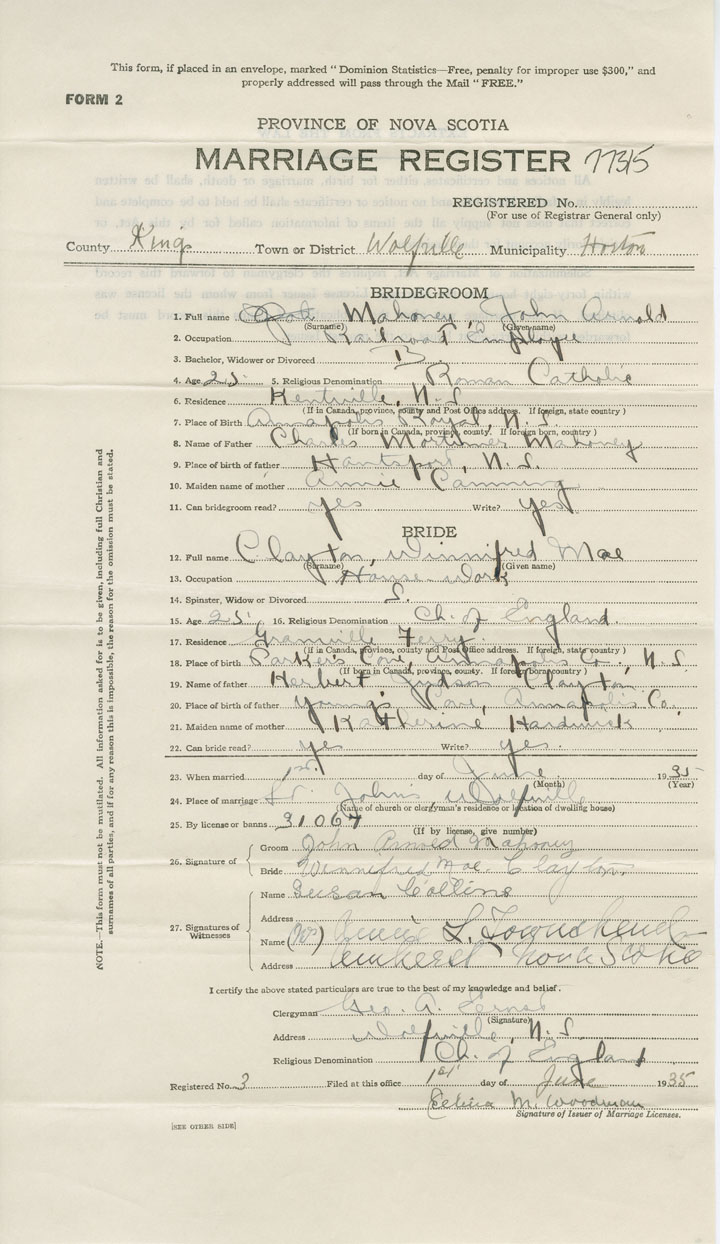 This form, if placed in an envelope, marked "Dominion Statistics—Free, penalty for improper use $300," and
properly addressed will pass through the Mail "FREE."
FORM 2
PROVINCE OF NOVA SCOTIA
MARRIAGE REGISTER 77315
REGISTERED No.
(For use of Registrar General only)
County Kings Town or District Wolfville Municipality Horton
BRIDEGROOM
1. Full name Mahoney, John Arnold
(Surname) (Given name)
2. Occupation Railroad Employee
3. Bachelor, Widower or Divorced B
4. Age 25 5. Religious Denomination Roman Catholic
6. Residence Kentville, N.S.
(If in Canada, province, county and Post Office address. If foreign, state country)
7. Place of Birth Annapolis Royal, N.S.
(If born in Canada, province, county. If foreign born, country)
8. Name of Father Charles Mortimer Mahoney
9. Place of birth of father Hantsport, N.S.
10. Maiden name of mother Annie Canning
11. Can bridegroom read? yes Write? yes
BRIDE
12. Full name Clayton, Winnifred Mae
(Surname) (Given name)
13. Occupation House-work
14. Spinster, Widow or Divorced S.
15. Age 25 16. Religious Denomination Ch. of England.
17. Residence Granville Ferry.
(If in Canada, province, county and Post Office address. If foreign, state country)
18. Place of birth Parker's Cove, Annapolis Co., N.S
(If born in Canada, province, county. If foreign born, country)
19. Name of father Herbert Judson Clayton
20. Place of birth of father Young's Cove, Annapolis Co.
21. Maiden name of mother Katherine Hardwick
22. Can bride read? yes Write? yes.
23. When married 1st. day of June 1935
(Month) (Year)
24. Place of marriage St. John's Wolfville
(Name of church or clergyman's residence or location of dwelling house)
25. By license or banns 31067
(If by license, give number)
26. Signature of
Groom John Arnold Mahoney
Bride Winnifred Mae Clayton
27. Signatures of Witnesses
Name Susan Collins
Address
Name (Mrs) Annie L. Townshend
Address Amherst Nova Scotia
I certify the above stated particulars are true to the best of my knowledge and belief.
Clergyman Geo. A. Ernst
(Signature)
Address Wolfville, N.S.
Religious Denomination Ch. of England
Registered No. 3 Filed at this office 1st day of June 1935
M. Woodman
Signature of Issuer of Marriage Licenses.
[SEE OTHER SIDE]
NOTE.—This form must not be mutilated. All information asked for is to be given, including full Christian and
surnames of all parties, and if for any reason this is impossible, the reason for the omission must be stated.